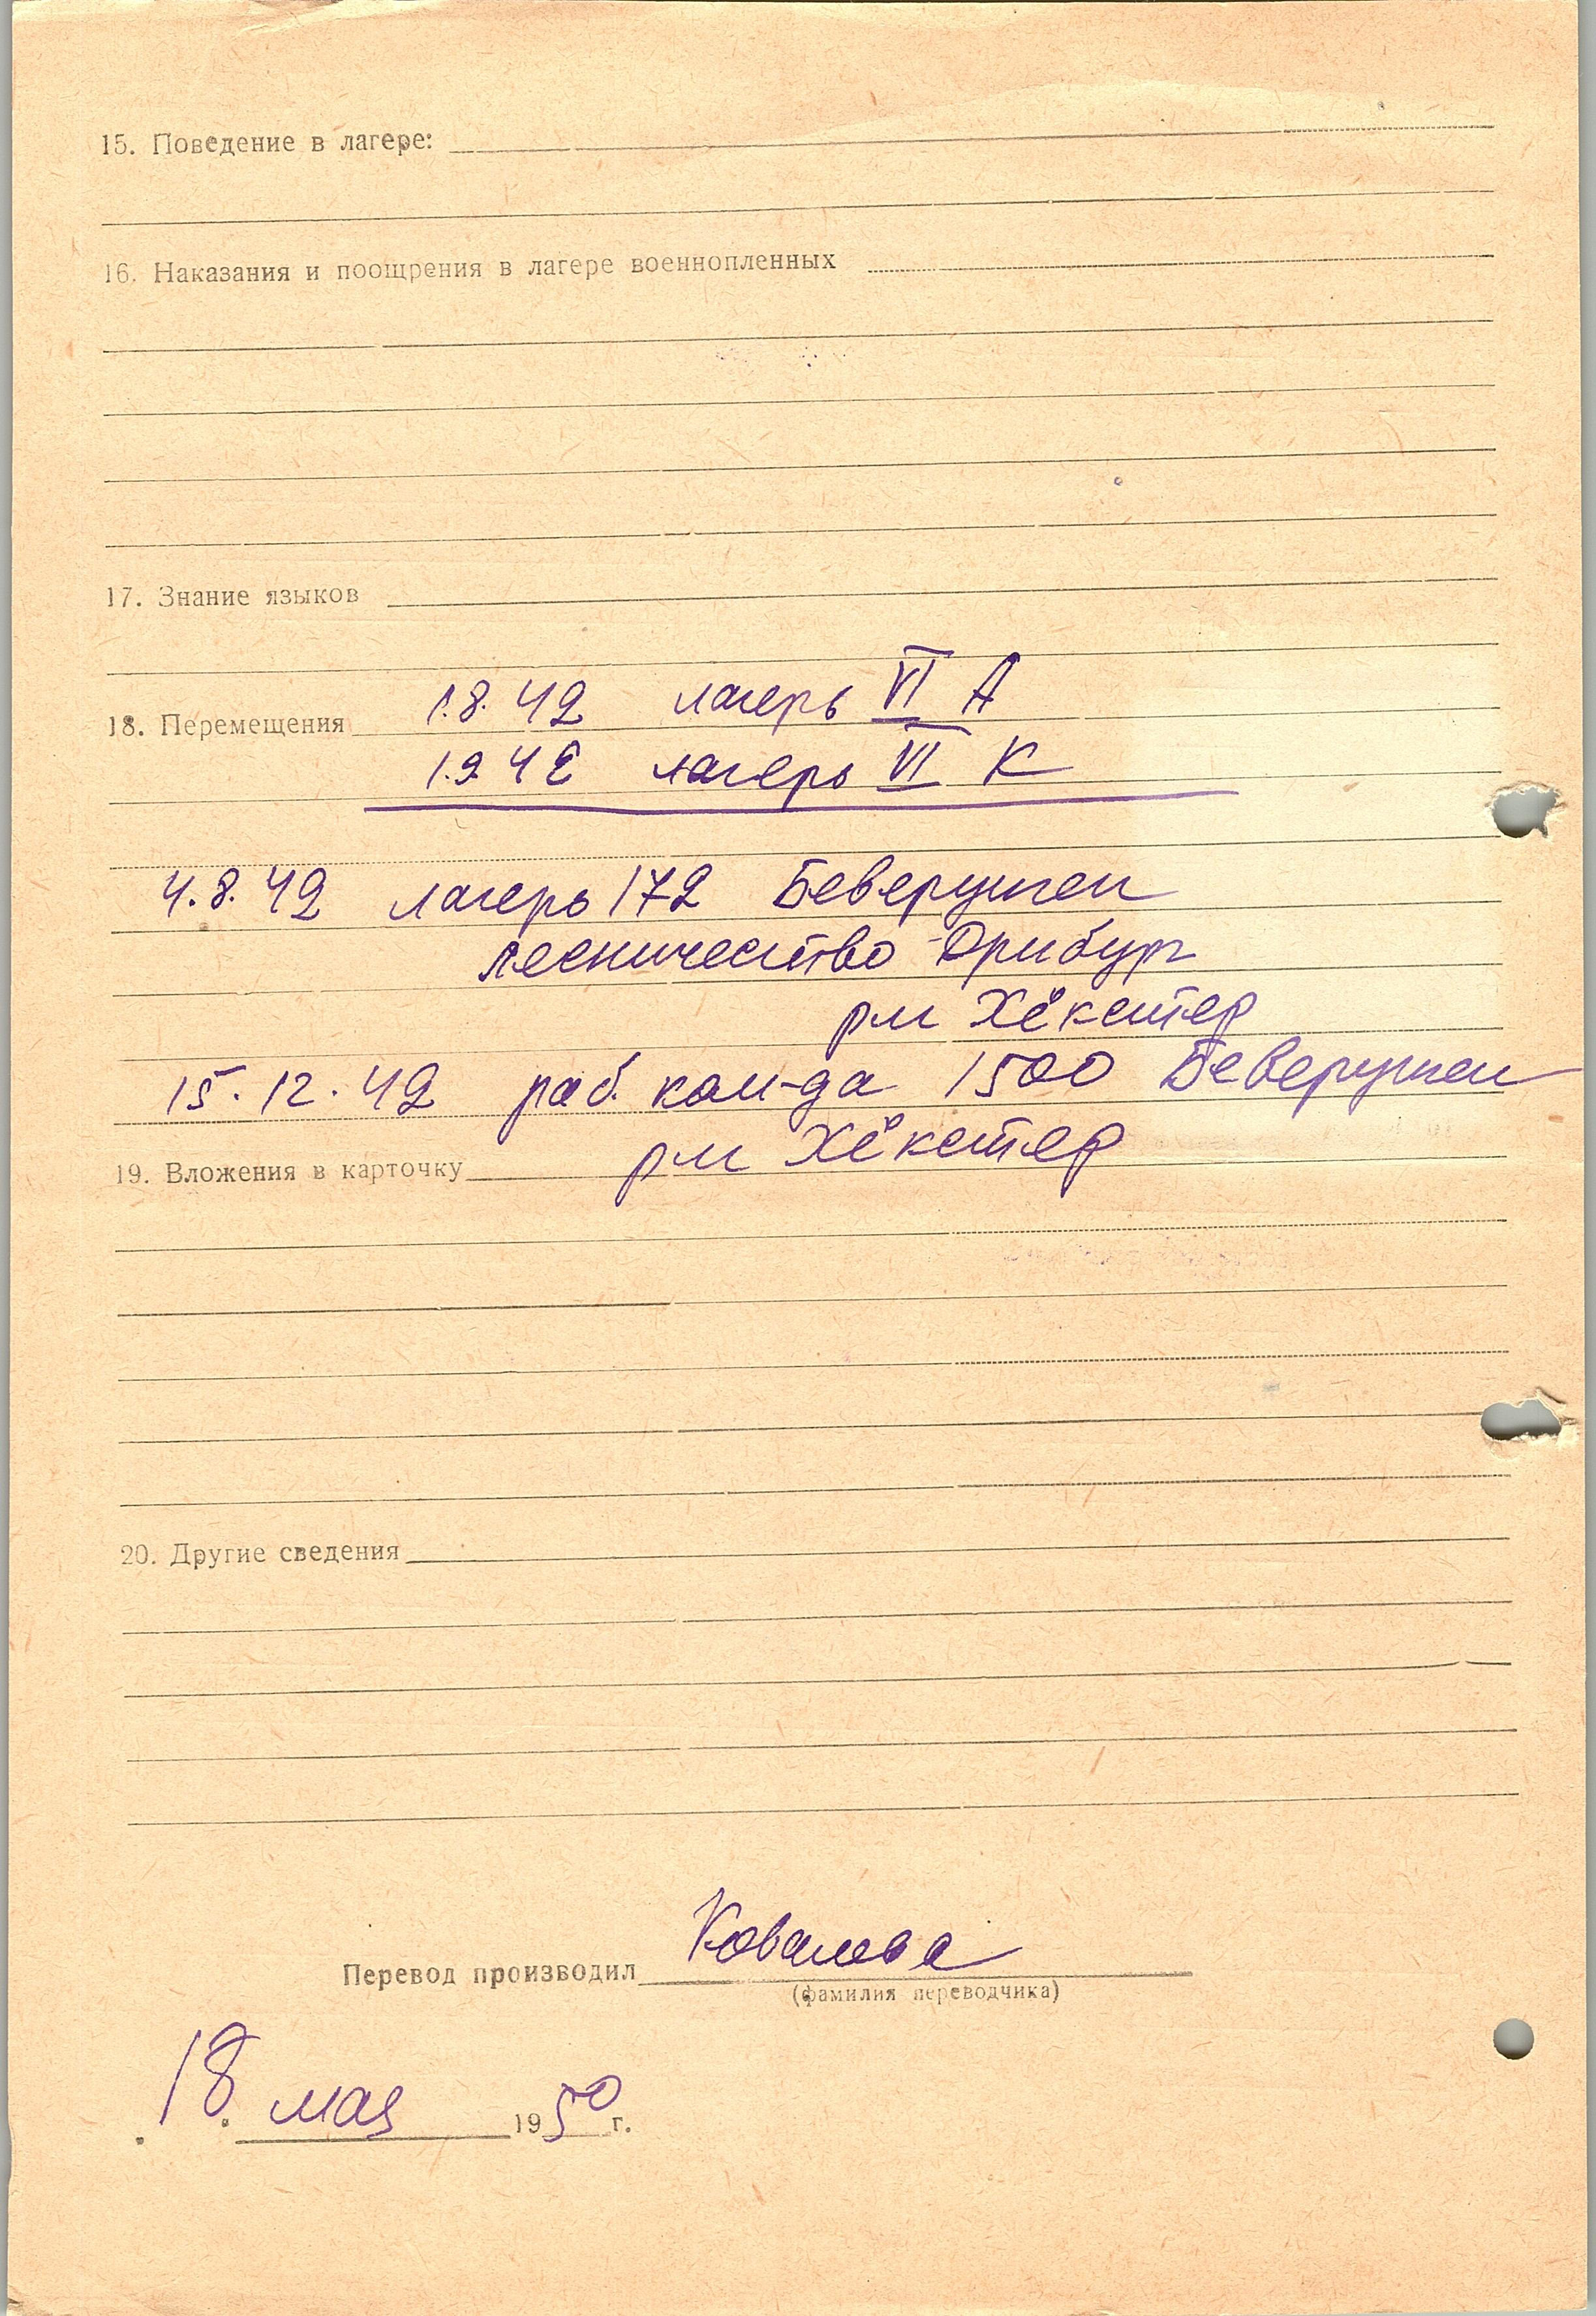 15. Поведение в лагере:
16. Наказания и поощрения в лагере военнопленных
17. Знание языков
1.8.42 лагерь VI А
18. Перемещения
1.9.42 лагерь VI К
4.8.42 лагерь 172 Беверунген
лесничество Дрибург
рм Хёкстер
15.12.42 раб. ком-да 1500 Беверунген
рм Хёкстер
19. Вложения в карточку
20. Другие сведения
Перевод производил Ковалева
(фамилия переводчика)
18 мая 1950 г.